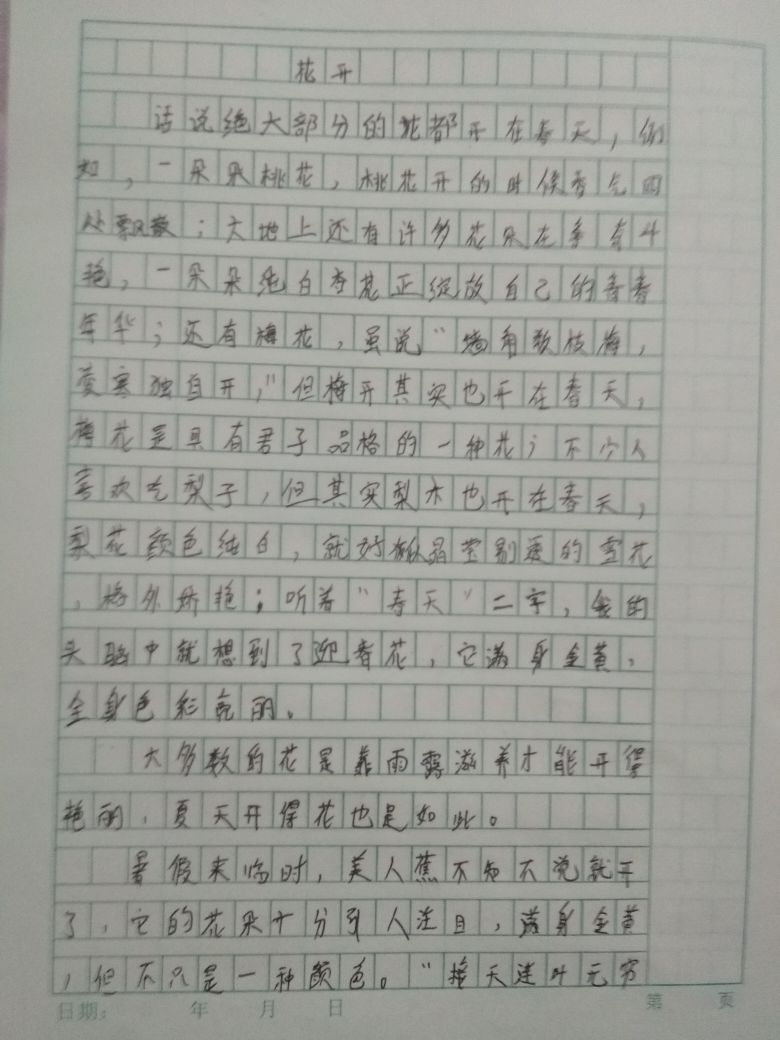 花开
话说绝大部分的花都开在春天，例
如，一朵朵桃花，桃花开的时候香气四
处飘散；大地上还有许多花朵在争奇斗
艳，一朵朵纯白杏花正绽放自己的青春
年华；还有梅花，虽说“墙角数枝梅，
凌寒独自开，”但梅开其实也开在春天，
梅花是具有君子品格的一种花；不少人
喜欢吃梨子，但其实梨木也开在春天，
梨花颜色纯白，就好像晶莹剔透的雪花
，格外娇艳；听着“春天”二字，我的
头脑中就想到了迎春花，它满身金黄，
全身色彩亮丽。
大多数的花是靠雨露滋养才能开得
艳丽，夏天开得花也是如此。
暑假来临时，美人蕉不知不觉就开
了，它的花朵十分引人注目，满身金黄
，但不只是一种颜色。“接天莲叶无穷
日期： 年 月 日 第 页